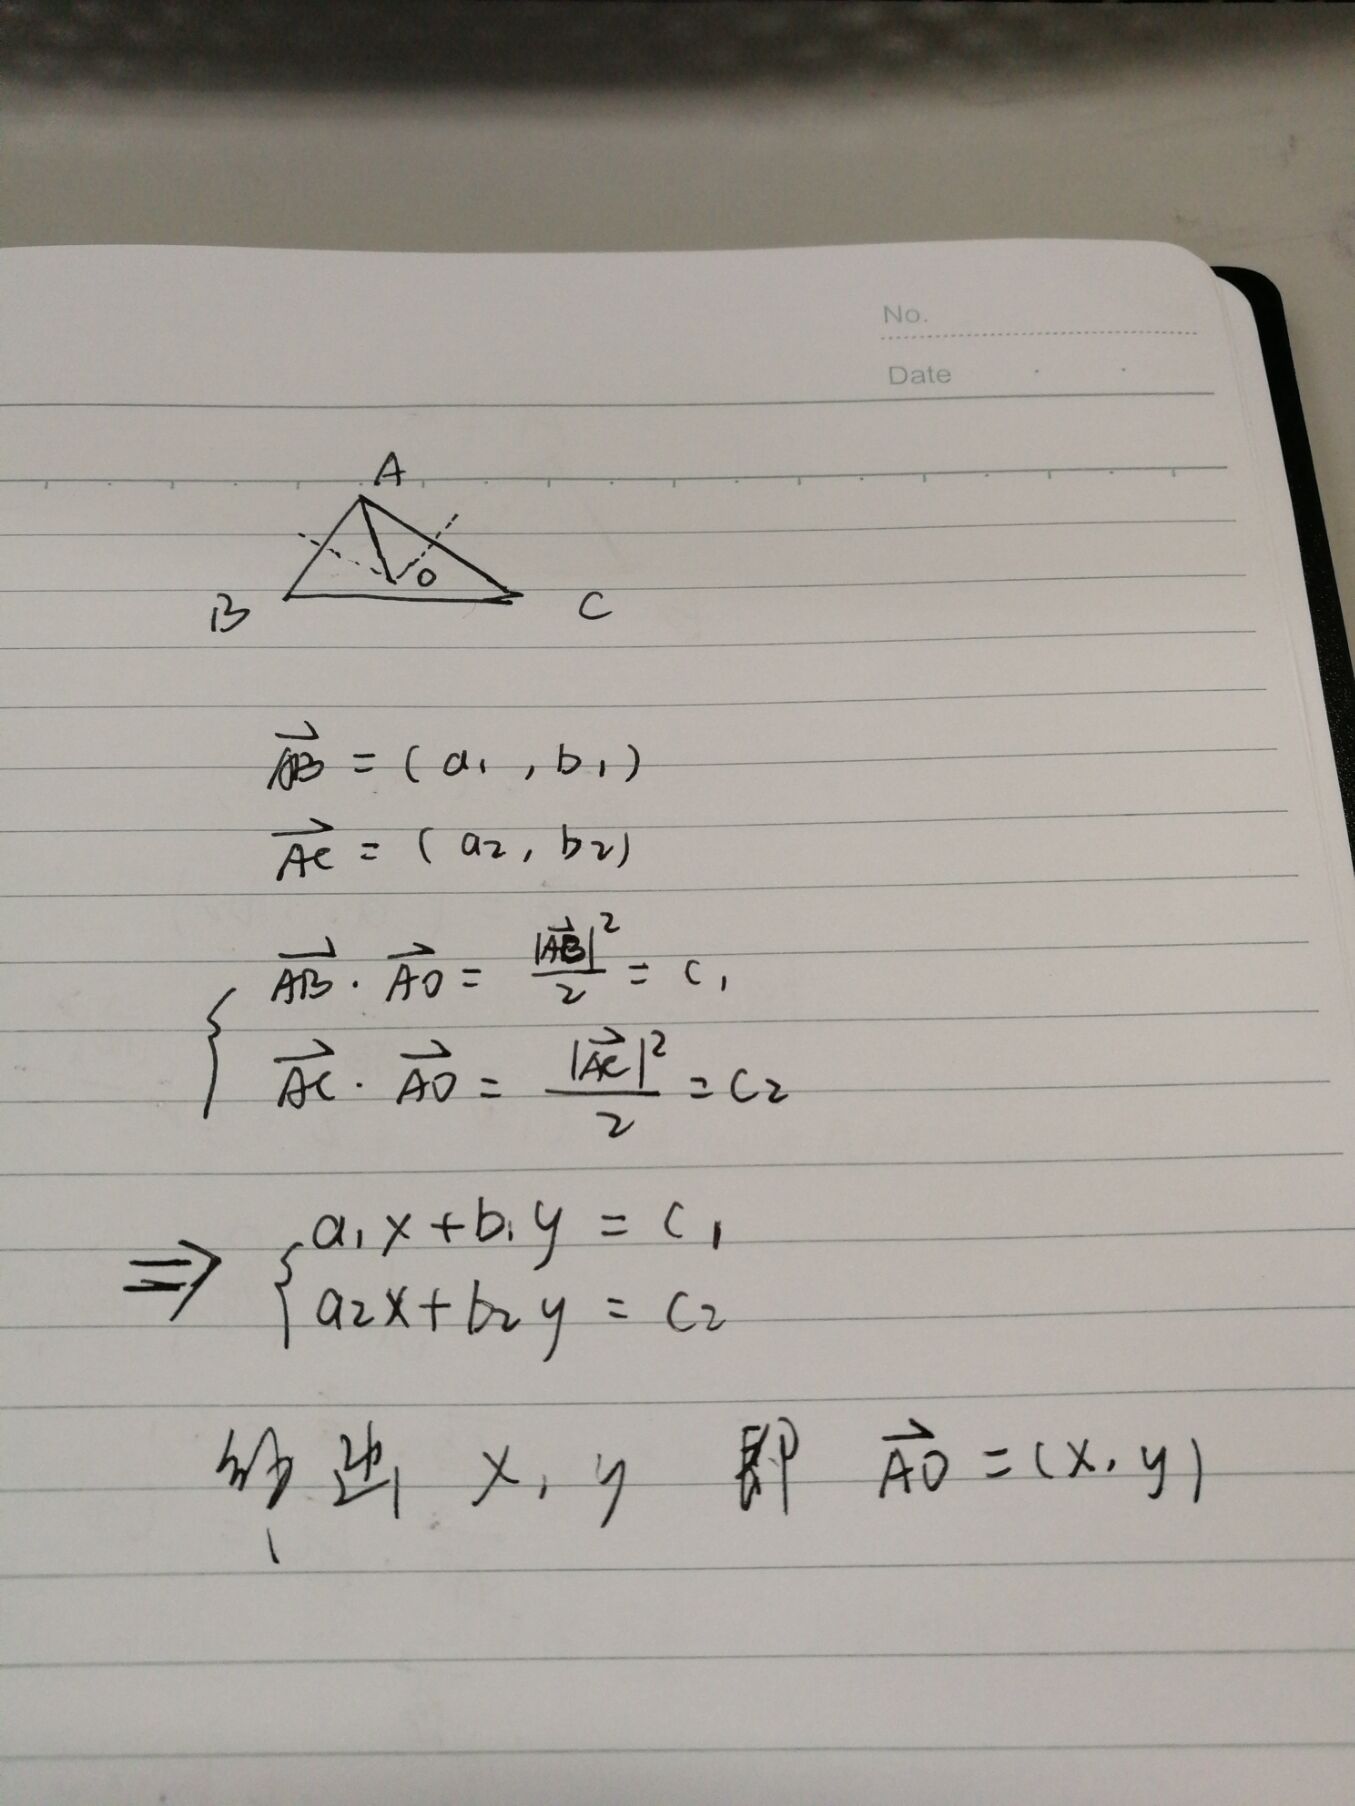 No.
Date
A
O
B
C
\vec{AB} = (a₁, b₁)
\vec{AC} = (a₂, b₂)
\vec{AB} · \vec{AO} = \frac{|\vec{AB}|^2}{2} = c₁
\vec{AC} · \vec{AO} = \frac{|\vec{AC}|^2}{2} = c₂
⇒ { a₁x + b₁y = c₁
a₂x + b₂y = c₂
x, y 即 \vec{AO} = (x, y)